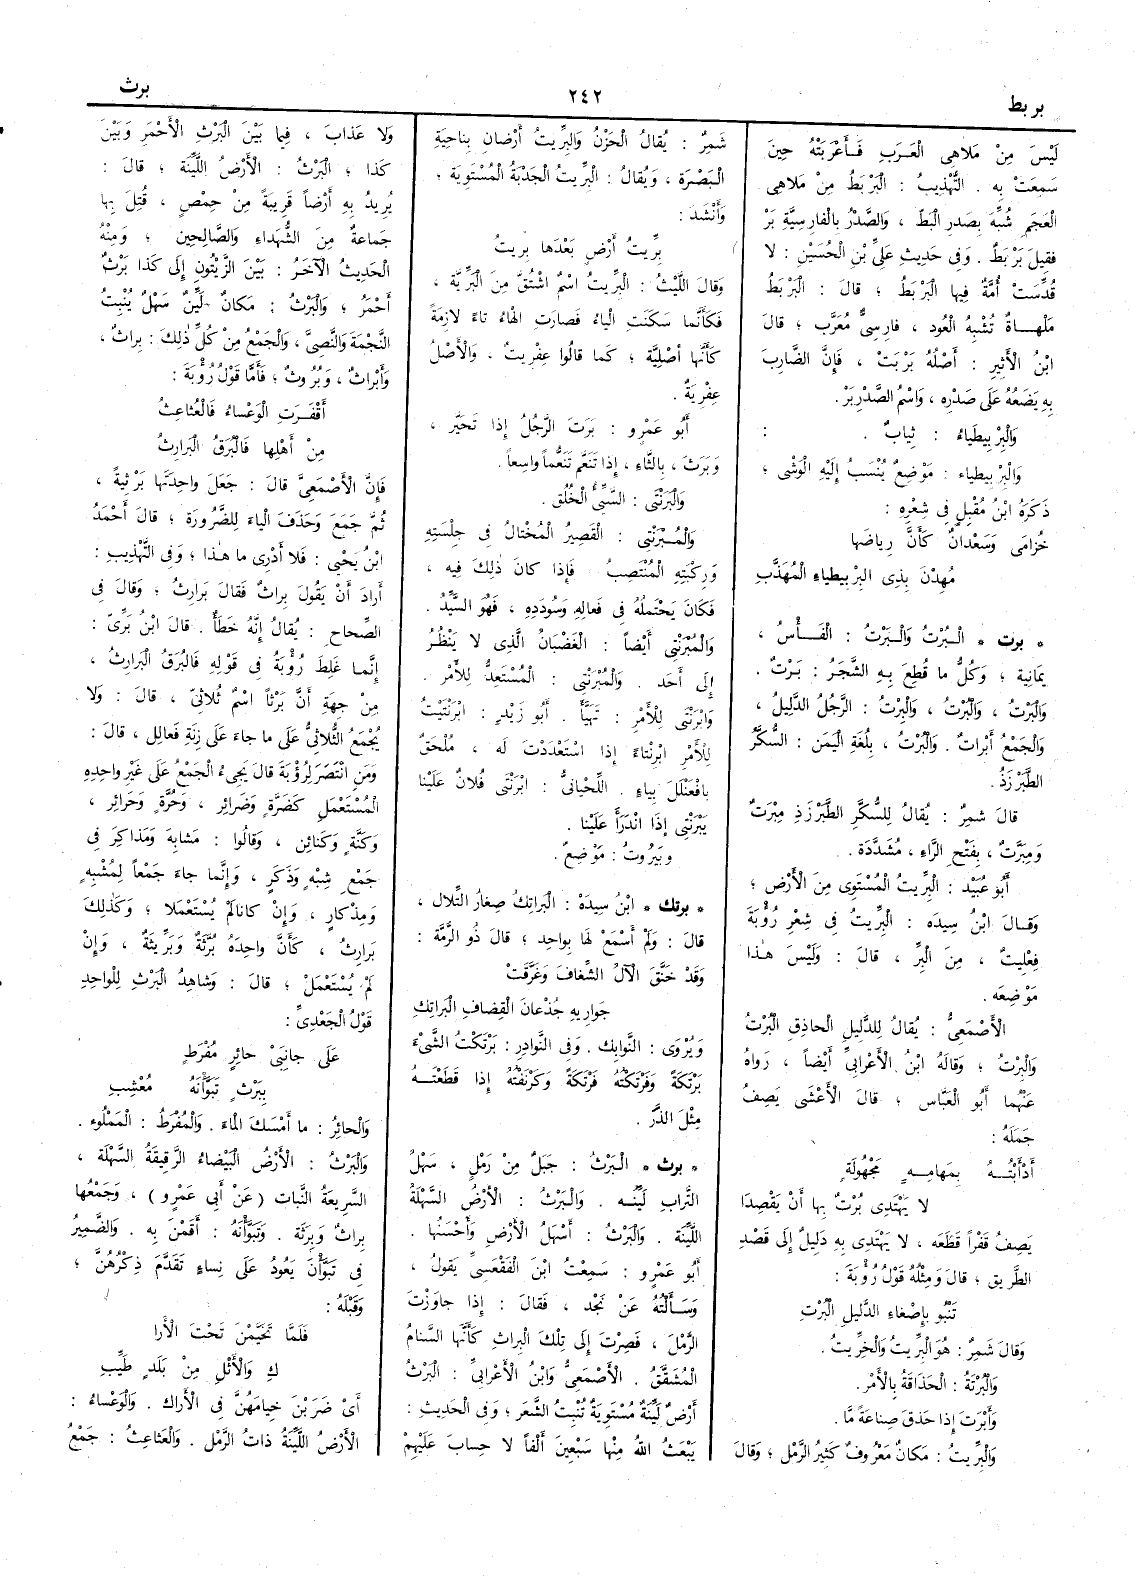 بربط
٢٤٢
برث
لَيْسَ مِنْ مَلَاهِى الْعَرَبِ فَأَعْرَبَتْهُ حِينَ
سَمِعَتْ بِهِ . التَّهْذِيبُ : الْبَرْبَطُ مِنْ مَلَاهِى
الْعَجَمِ شُبِّهَ بِصَدْرِ الْبَطِّ ، وَالصَّدْرُ بِالْفَارِسِيَّةِ بَرْ
فَقِيلَ بَرْبَطٌ . وَفِى حَدِيثِ عَلِىِّ بْنِ الْحُسَيْنِ : لا
قُدِّسَتْ أُمَّةٌ فِيهَا الْبَرْبَطُ ؛ قالَ : الْبَرْبَطُ
مَلْهَاةٌ تُشْبِهُ الْعُودَ ، فارِسِىٌّ مُعَرَّب ؛ قالَ
ابْنُ الْأَثِيرِ : أَصْلُهُ بَرْبَتْ ، فَإِنَّ الضَّارِبَ
بِهِ يَضَعُهُ عَلَى صَدْرِهِ ، وَاسْمُ الصَّدْرِ بَرْ .
وَالْبِرْبِيطِيَاءُ : ثِيابٌ .
وَالْبِرْبِيطِياء : مَوْضِعٌ يُنْسَبُ إِلَيْهِ الْوَشْى ؛
ذَكَرَهُ ابْنُ مُقْبِلٍ فِى شِعْرِهِ :
خُزامَى وَسَعْدانٌ كَأَنَّ رِياضَها
مُهِدْنَ بِذِى الْبِرْبِيطِياءِ الْمُهَذَّبِ
* برت * الْبُرْتُ وَالْبَرْتُ : الْفَأْسُ ،
يَمَانِية ؛ وَكُلُّ ما قُطِعَ بِهِ الشَّجَرُ : بَرْتٌ .
وَالْبَرْتُ ، وَالْبُرْتُ ، وَالْبِرْتُ : الرَّجُلُ الدَّلِيلُ ،
وَالْجَمْعُ أَبْراتٌ . وَالْبُرْتُ ، بِلُغَةِ الْيَمَنِ : السُّكَّرُ
الطَّبَرْزَذُ .
قالَ شَمِرٌ : يُقالُ لِلسُّكَّرِ الطَّبَرْزَذِ مِبْرَتٌ
وَمِبَرَّتٌ ، بِفَتْحِ الرَّاءِ ، مُشَدَّدَة .
أَبُو عُبَيْد : الْبِرِّيتُ الْمُسْتَوِى مِنَ الْأَرْضِ ؛
وَقَالَ ابْنُ سِيدَه : الْبِرِّيتُ فِى شِعْرِ رُؤْبَةَ
فِعْلِيتٌ ، مِنَ الْبِرِّ ، قالَ : وَلَيْسَ هٰذا
مَوْضِعَه .
الْأَصْمَعِىُّ : يُقالُ لِلدَّلِيلِ الْحاذِقِ الْبُرْتُ
وَالْبِرْتُ ؛ وَقالَهُ ابْنُ الْأَعْرابِىِّ أَيْضاً ، رَواهُ
عَنْهُما أَبُو الْعَبَّاس ؛ قالَ الْأَعْشَى يَصِفُ
جَمَلَهُ :
أَدْأَبْتُهُ بِمَهامِهٍ مَجْهُولَةٍ
لا يَهْتَدِى بُرْتٌ بِها أَنْ يَقْصِدَا
يَصِفُ قَفْراً قَطَعَه ، لا يَهْتَدِى بِهِ دَلِيلٌ إِلَى قَصْدِ
الطَّرِيقِ ؛ قالَ وَمِثْلُهُ قَوْلُ رُؤْبَةَ :
تَنْبُو بِإِصْغاءِ الدَّلِيلِ الْبُرْتِ
وَقالَ شَمِرٌ : هُوَ الْبِرِّيتُ وَالْخِرِّيتُ .
وَالْبُرْتَةُ : الْحَذاقَةُ بِالْأَمْرِ .
وَأَبْرَتَ إِذا حَذَقَ صِناعَةً مَّا .
وَالْبِرِّيتُ : مَكانٌ مَعْرُوفٌ كَثِيرُ الرَّمْلِ ؛ وَقالَ
شَمِرٌ : يُقالُ الْحَزْنُ وَالْبِرِّيتُ أَرْضانِ بِناحِيَةِ
الْبَصْرَة ، وَيُقالُ : الْبِرِّيتُ الْجَدْبَةُ الْمُسْتَوِيَة ؛
وَأَنْشَدَ :
بِرِّيتُ أَرْضٍ بَعْدَها بِرِيتُ
وَقالَ اللَّيْثُ : الْبِرِّيتُ اسْمٌ اشْتُقَّ مِنَ الْبَرِّيَّةِ ،
فَكَأَنَّما سَكَنَتِ الْياءُ فَصارَتِ الْهاءُ تاءً لازِمَةً
كَأَنَّها أَصْلِيَّة ؛ كَما قالُوا عِفْرِيتٌ ، وَالْأَصْلُ
عِفْرِيَةٌ .
أَبُو عَمْرٍو : بَرِتَ الرَّجُلُ إِذا تَحَيَّرَ ،
وَبَرِثَ ، بِالثَّاءِ ، إِذا تَنَعَّمَ تَنَعُّماً واسِعاً .
وَالْبَرَنْتَى : السَّيِّئُ الْخُلُقِ .
وَالْمُبْرَنْتِى : الْقَصِيرُ الْمُخْتالُ فِى جِلْسَتِهِ
وَرِكْبَتِهِ الْمُنْتَصِبُ فَإِذا كانَ ذٰلِكَ فِيهِ ،
فَكانَ يَحْتَمِلُهُ فِى فَعالِهِ وَسُودَدِهِ ، فَهُوَ السَّيِّدُ .
وَالْمُبْرَنْتِى أَيْضاً : الْغَضْبانُ الَّذِى لا يَنْظُرُ
إِلَى أَحَد . وَالْمُبْرَنْتِى : الْمُسْتَعِدُّ لِلْأَمْرِ .
وَابْرَنْتَى لِلْأَمْرِ : تَهَيَّأَ . أَبُو زَيْدٍ : ابْرَنْتَيْتُ
لِلْأَمْرِ ابْرِنْتاءً إِذا اسْتَعْدَدْتَ لَه ، مُلْحَقٌ
بِافْعَنْلَلَ بِياءٍ . اللِّحْيانِىُّ : ابْرَنْتَى فُلانٌ عَلَيْنا
يَبْرَنْتِى إِذَا انْدَرَأَ عَلَيْنا .
وَبَيْرُوتُ : مَوْضِعٌ .
* برتك * ابْنُ سِيدَهْ : الْبَراتِكُ صِغارُ التِّلال ،
قالَ : وَلَمْ أَسْمَعْ لَها بِواحِد ؛ قالَ ذُو الرُّمَّة :
وَقَدْ خَنَّقَ الْآلُ الشِّعافَ وَغَرَّقَتْ
جَوارِيهِ جُذْعانَ الْقِضافِ الْبَراتِكِ
وَيُرْوَى : النَّوابِكِ . وَفِى النَّوادِرِ : بَرْتَكْتُ الشَّىْءَ
بَرْتَكَةً وَفَرْتَكْتُهُ فَرْتَكَةً وَكَرْنَفْتُهُ إِذا قَطَعْتَهُ
مِثْلَ الذَّرِّ .
* برث * الْبَرْثُ : جَبَلٌ مِنْ رَمْلٍ ، سَهْلُ
التُّرابِ لَيِّنُه . وَالْبَرْثُ : الْأَرْضُ السَّهْلَةُ
اللَّيِّنَة . وَالْبَرْثُ : أَسْهَلُ الْأَرْضِ وَأَحْسَنُها .
أَبُو عَمْرٍو : سَمِعْتُ ابْنَ الْفَقْعَسِىِّ يَقُولُ ،
وَسَأَلْتُهُ عَنْ نَجْد ، فَقالَ : إِذا جاوَزْتَ
الرَّمْلَ ، فَصِرْتَ إِلَى تِلْكَ الْبِراثِ كَأَنَّها السَّنامُ
الْمُشَقَّقُ . الْأَصْمَعِىُّ وَابْنُ الْأَعْرابِىِّ : الْبَرْثُ
أَرْضٌ لَيِّنَةٌ مُسْتَوِيَةٌ تُنْبِتُ الشَّعَرَ ؛ وَفِى الْحَدِيثِ :
يَبْعَثُ اللهُ مِنْها سَبْعِينَ أَلْفاً لا حِسابَ عَلَيْهِمْ
وَلا عَذابَ ، فِيما بَيْنَ الْبَرْثِ الْأَحْمَرِ وَبَيْنَ
كَذا ؛ الْبَرْثُ : الْأَرْضُ اللَّيِّنَة ؛ قالَ :
يُرِيدُ بِهِ أَرْضاً قَرِيبَةً مِنْ حِمْصٍ ، قُتِلَ بِها
جَماعَةٌ مِنَ الشُّهَداءِ وَالصَّالِحِينَ ؛ وَمِنْهُ
الْحَدِيثُ الْآخَرُ : بَيْنَ الزَّيْتُونِ إِلَى كَذا بَرْثٌ
أَحْمَرُ ؛ وَالْبَرْثُ : مَكانٌ لَيِّنٌ سَهْلٌ يُنْبِتُ
النَّجْمَةَ وَالنَّصِىَّ ، وَالْجَمْعُ مِنْ كُلِّ ذٰلِكَ : بِراثٌ ،
وَأَبْراثٌ ، وَبُرُوثٌ ؛ فَأَمَّا قَوْلُ رُؤْبَةَ :
أَقْفَرَتِ الْوَعْساءُ فَالْعُثاعِثُ
مِنْ أَهْلِها فَالْبُرَقُ الْبَرارِثُ
فَإِنَّ الْأَصْمَعِىَّ قالَ : جَعَلَ واحِدَتَها بَرِّثِيةً ،
ثُمَّ جَمَعَ وَحَذَفَ الْياءَ لِلضَّرُورَة ؛ قالَ أَحْمَدُ
ابْنُ يَحْيَى : فَلا أَدْرِى ما هٰذا ؛ وَفِى التَّهْذِيبِ :
أَرادَ أَنْ يَقُولَ بِراثٌ فَقالَ بَرارِثُ ؛ وَقالَ فِى
الصِّحاحِ : يُقالُ إِنَّهُ خَطَأٌ . قالَ ابْنُ بَرِّىّ :
إِنَّما غَلِطَ رُؤْبَةُ فِى قَوْلِهِ فَالْبُرَقُ الْبَرارِثُ ،
مِنْ جِهَةِ أَنَّ بَرْثاً اسْمٌ ثُلاثِىّ ، قالَ : وَلا
يُجْمَعُ الثُّلاثِىُّ عَلَى ما جاءَ عَلَى زِنَةِ فَعالِل ، قالَ :
وَمَنِ انْتَصَرَ لِرُؤْبَةَ قالَ يَجِىءُ الْجَمْعُ عَلَى غَيْرِ واحِدِهِ
الْمُسْتَعْمَلِ كَضَرَّةٍ وَضَرائِر ، وَحُرَّةٍ وَحَرائِر ،
وَكَنَّةٍ وَكَنائِن ، وَقالُوا : مَشابِهَ وَمَذاكِرَ فِى
جَمْعِ شِبْهٍ وَذَكَرٍ ، وَإِنَّما جاءَ جَمْعاً لِمُشْبِهٍ
وَمِذْكارٍ ، وَإِنْ كانا لَمْ يُسْتَعْمَلا ؛ وَكَذٰلِكَ
بَرارِثُ ، كَأَنَّ واحِدَهُ بُرَّثَةٌ وَبَرِّيثَةٌ ، وَإِنْ
لَمْ يُسْتَعْمَلْ ؛ قالَ : وَشاهِدُ الْبَرْثِ لِلْواحِدِ
قَوْلُ الْجَعْدِىِّ :
عَلَى جانِبَىْ حائِرٍ مُفْرَطٍ
بِبَرْثٍ تَبَوَّأْنَهُ مُعْشِبِ
وَالْحائِرُ : ما أَمْسَكَ الْماءَ . وَالْمُفْرَطُ : الْمَمْلُوء .
وَالْبَرْثُ : الْأَرْضُ الْبَيْضاءُ الرَّقِيقَةُ السَّهْلَة ،
السَّرِيعَةُ النَّباتِ (عَنْ أَبِى عَمْرٍو) ، وَجَمْعُها
بِراثٌ وَبِرَثَة . وَتَبَوَّأْنَهُ : أَقَمْنَ بِه . وَالضَّمِيرُ
فِى تَبَوَّأْنَ يَعُودُ عَلَى نِساءٍ تَقَدَّمَ ذِكْرُهُنَّ ؛
وَقَبْلَهُ :
فَلَمَّا تَخَيَّمْنَ تَحْتَ الْأَرا
كِ وَالْأَثْلِ مِنْ بَلَدٍ طَيِّبِ
أَىْ ضَرَبْنَ خِيامَهُنَّ فِى الْأَراكِ . وَالْوَعْساءُ :
الْأَرْضُ اللَّيِّنَةُ ذاتُ الرَّمْل . وَالْعَثاعِثُ : جَمْعُ